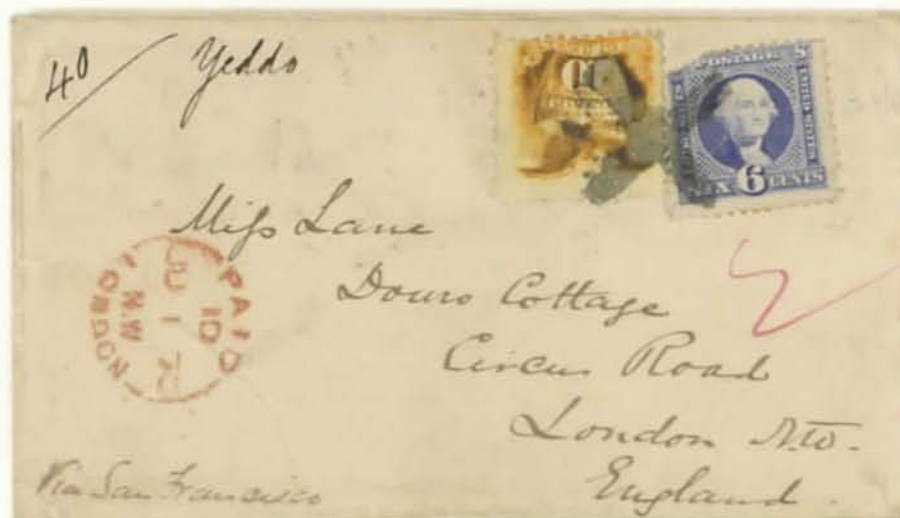 40 / Yeddo
10
POSTAGE
UNITED STATES
SIX 6 CENTS
Mifs Lane
Douro Cottage
Circus Road
London N.W.
England.
PAID
10
JU 1 70
LONDON N.W
Via San Francisco